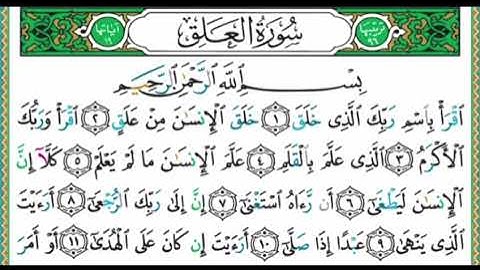 ترتيبها ٩٦ سُورَةُ الْعَلَقِ آياتها ١٩
بِسْمِ اللَّهِ الرَّحْمَٰنِ الرَّحِيمِ
اقْرَأْ بِاسْمِ رَبِّكَ الَّذِي خَلَقَ ١ خَلَقَ الْإِنسَانَ مِنْ عَلَقٍ ٢ اقْرَأْ وَرَبُّكَ
الْأَكْرَمُ ٣ الَّذِي عَلَّمَ بِالْقَلَمِ ٤ عَلَّمَ الْإِنسَانَ مَا لَمْ يَعْلَمْ ٥ كَلَّا إِنَّ
الْإِنسَانَ لَيَطْغَىٰ ٦ أَن رَّآهُ اسْتَغْنَىٰ ٧ إِنَّ إِلَىٰ رَبِّكَ الرُّجْعَىٰ ٨ أَرَأَيْتَ
الَّذِي يَنْهَىٰ ٩ عَبْدًا إِذَا صَلَّىٰ ١٠ أَرَأَيْتَ إِن كَانَ عَلَى الْهُدَىٰ ١١ أَوْ أَمَرَ